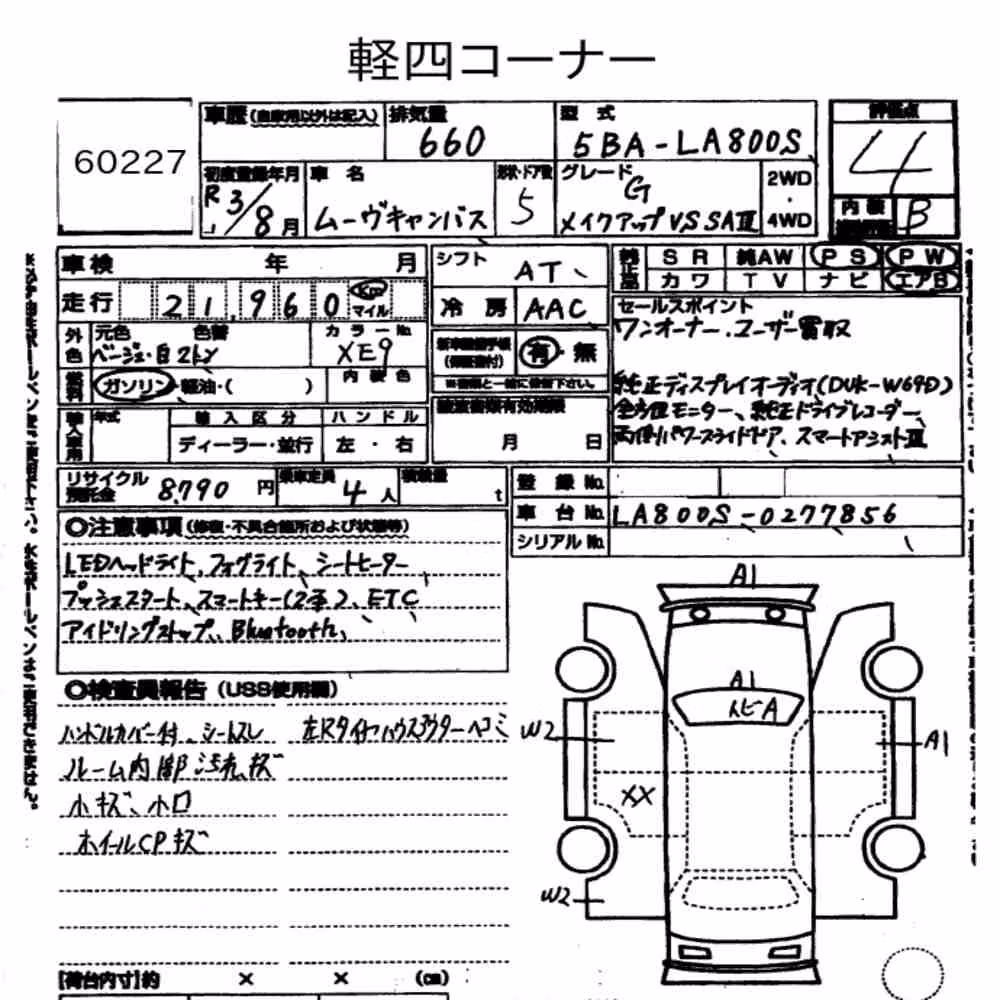 軽四コーナー
60227
車歴 (自家用以外は記入)
排気量
660
型 式
5BA-LA800S
評価点
4
初度登録年月
R3/8月
車 名
ムーヴキャンバス
形状・ドア数
5
グレード
G
メイクアップVS SAⅢ
2WD
・
4WD
内 装
B
車検 年 月
走行 21,960 Km マイル
シフト AT
冷 房 AAC
純正品
SR 純AW PS PW
カワ TV ナビ エアB
外色
元色 色替
ベージュ・白2トン
カラーNo.
XE9
燃料
ガソリン・軽油・( )
内装色
有・無
※書類と一緒に保管下さい。
セールスポイント
ワンオーナー、ユーザー買取
純正ディスプレイオーディオ(DUK-W69D)
全方位モニター、純正ドライブレコーダー
両側パワースライドドア、スマートアシストⅢ
輸入車用
年式
輸入区分
ハンドル
ディーラー・並行
左・右
月 日
リサイクル預託金 8,790 円
乗車定員 4 人
積載量 t
登録No.
車台No. LA800S-0277856
シリアルNo.
◎注意事項 (修復・不具合箇所および状態等)
LEDヘッドライト、フォグライト、シートヒーター
プッシュスタート、スマートキー(2本)、ETC
アイドリングストップ、Bluetooth、
◎検査員報告 (USS使用欄)
ハンドルカバー付、シートスレ
左Rタイヤハウスアウターヘコミ
ルーム内部汚れ、キズ
小キズ、小凹
ホイールCPキズ
A1
A1
トビA
W2
A1
XX
W2
[荷台内寸]約 × × (㎝)